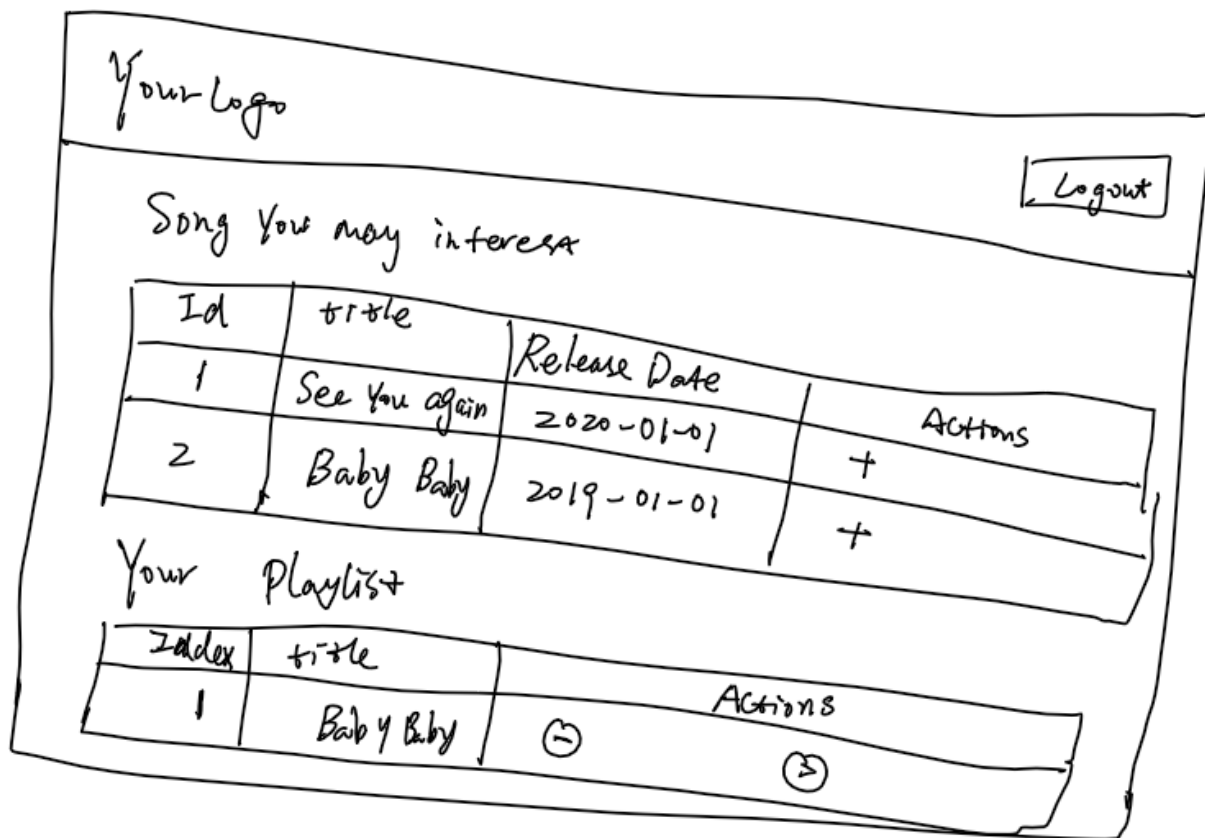 Your Logo
Logout
Song You may interest
Id title Release Date Actions
1 See You again 2020-01-01 +
2 Baby Baby 2019-01-01 +
Your Playlist
Index title Actions
1 Baby Baby